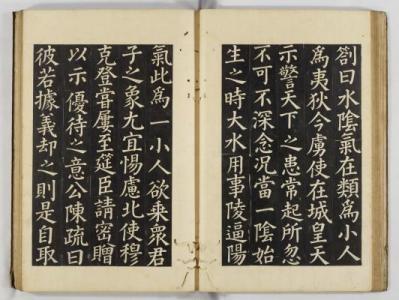 劄曰水陰氣在類爲小人
爲夷狄今虜使在城皇天
示警天下之患常起所忽
不可不深念況當一陰始
生之時大水用事陵逼陽
氣此爲一小人欲乘衆君
子之象尤宜惕慮北使穆
克登嘗屢至筵臣請密贈
以示優待之意公陳疏曰
彼若據義却之則是自取